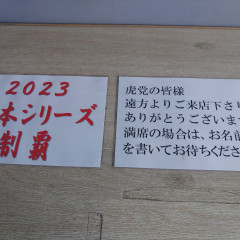 2023
本シリーズ
制覇
虎党の皆様
遠方よりご来店下さり
ありがとうございます
満席の場合は、お名前
を書いてお待ちくださ